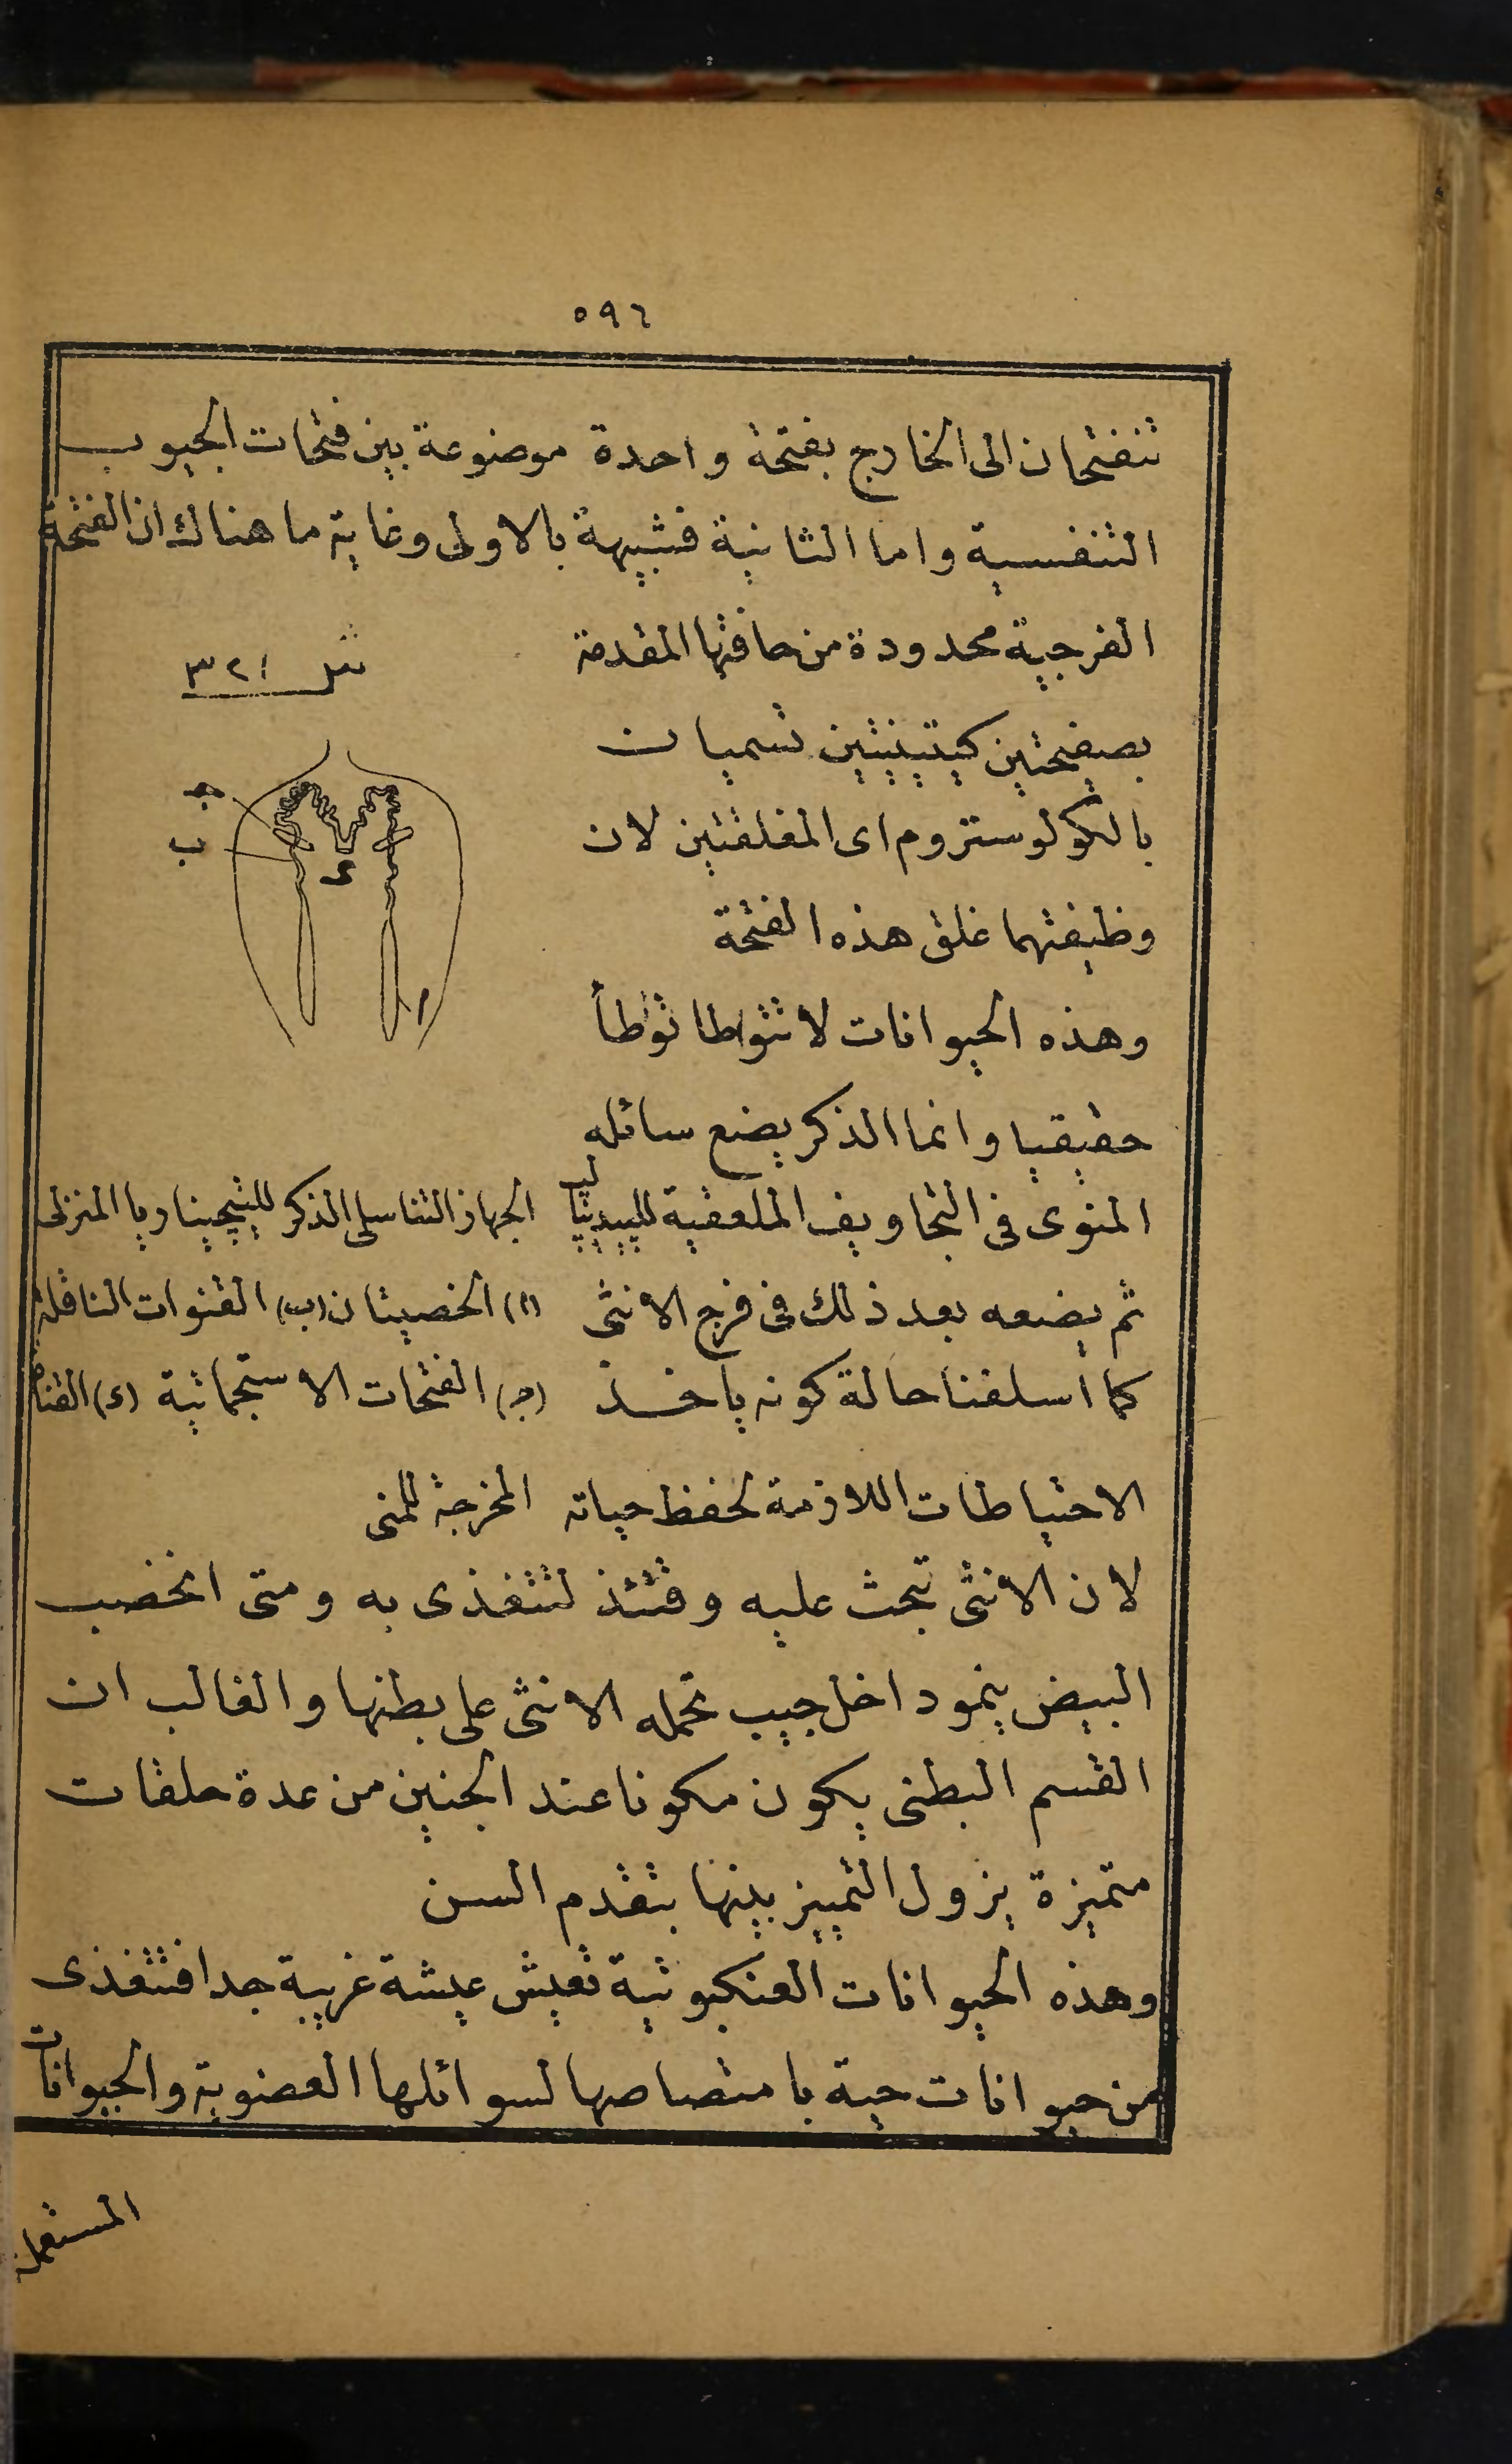 ٥٩٦
تنفتحان الى الخارج بفتحة واحدة موضوعة بين فتحات الجيوب
التنفسية واما الثانية فشبيهة بالاولى وغاية ما هناك ان الفتحة
الفرجية محدودة من حافتها المقدمة
بصفيحتين كيتينيتين تسميان
بالكولوستروم اى المغلقتين لان
وظيفتهما غلق هذه الفتحة
وهذه الحيوانات لا تتواطا تواطأ
حقيقيا وانما الذكر يضع سائله
المنوى فى التجاويف الملعقية للبيديبالب
ثم يضعه بعد ذلك فى فرج الانثى
كما اسلفنا حالة كونه ياخذ
الاحتياطات اللازمة لحفظ حياته
شكل ٣٢١
جـ
ب
د
ا
الجهاز التناسلى الذكر للتيجيناريا المنزلى
(ا) الخصيتان (ب) القنوات الناقلة
(جـ) الفتحات الاستجماتية (د) القناة
المخرجة للمنى
لان الانثى تبحث عليه وقتئذ لتتغذى به ومتى انخضب
البيض ينمو داخل جيب تحمله الانثى على بطنها والغالب ان
القسم البطنى يكون مكونا عند الجنين من عدة حلقات
متميزة يزول التمييز بينها بتقدم السن
وهذه الحيوانات العنكبوتية تعيش عيشة غريبة جدا فتتغذى
من حيوانات حية بامتصاصها لسوائلها العضوية والحيوانات
المستعملة